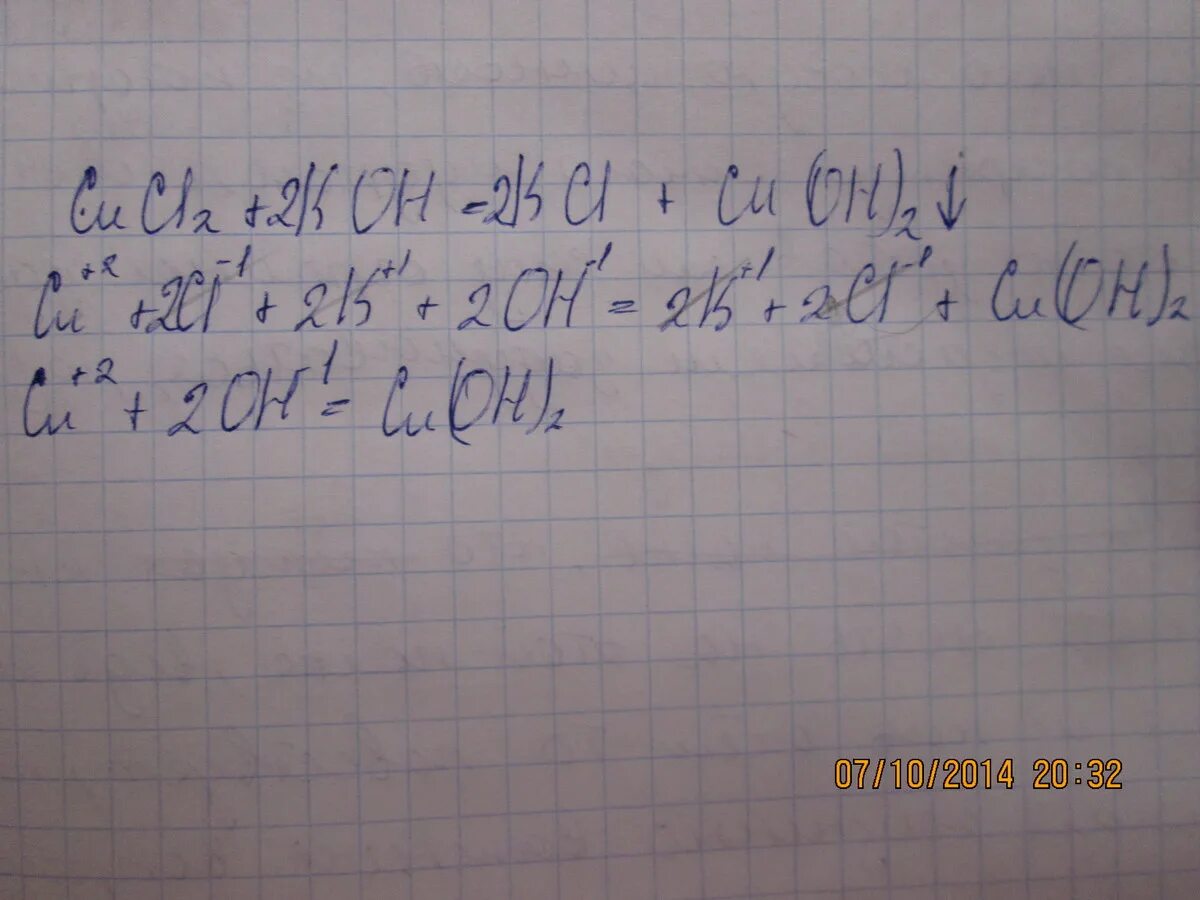 CuCl₂ + 2KOH = 2KCl + Cu(OH)₂↓
Cu⁺² + 2Cl⁻¹ + 2K⁺¹ + 2OH⁻¹ = 2K⁺¹ + 2Cl⁻¹ + Cu(OH)₂
Cu⁺² + 2OH⁻¹ = Cu(OH)₂
07/10/2014 20:32